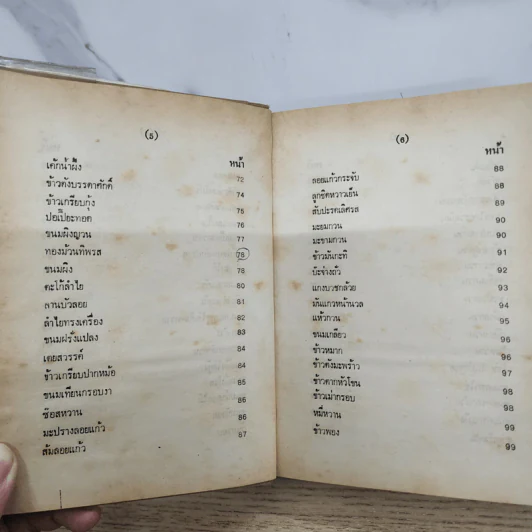 (5)
หน้า
เค้กน้ำผึ้ง 72
ข้าวตังบรรดาศักดิ์ 74
ข้าวเกรียบกุ้ง 75
ปอเปี๊ยะทอด 76
ขนมผิงญวน 77
ทองม้วนทิพรส 78
ขนมผิง 78
ตะโก้ลำไย 80
ลานบัวลอย 81
ลำไยทรงเครื่อง 82
ขนมฝรั่งแปลง 83
เตยสวรรค์ 84
ข้าวเกรียบปากหม้อ 84
ขนมเทียนกรอบงา 85
ซ๊อสหวาน 86
มะปรางลอยแก้ว 86
ส้มลอยแก้ว 87
(6)
หน้า
ลอยแก้วกระจับ 88
ลูกชิดหวาวเย็น 88
สับปะรดเลิศรส 89
มะยมกวน 90
มะขามกวน 90
ข้าวมันกะทิ 91
บ๊ะจ่างถั่ว 92
แกงบวชกล้วย 93
มันแกวหน้านวล 94
แห้วกวน 94
ขนมเกลียว 95
ข้าวหมาก 96
ข้าวตังมะพร้าว 96
ข้าวตากหัวโขน 97
ข้าวเม่ากรอบ 98
หมี่หวาน 99
ข้าวพอง 99